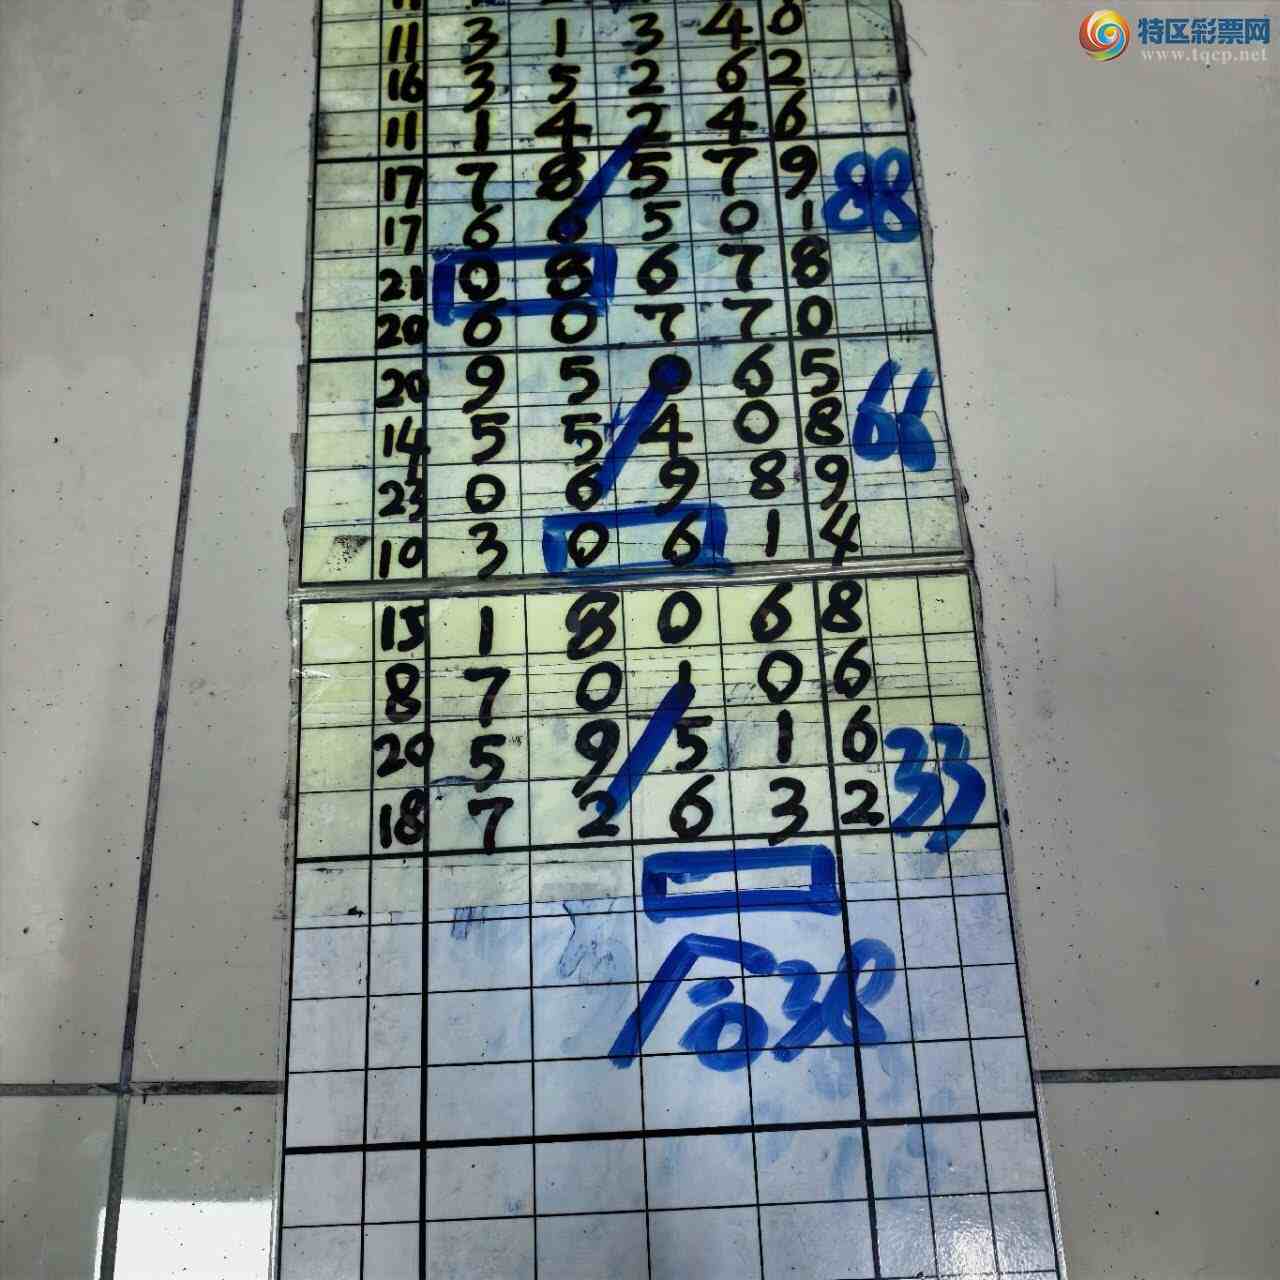 特区彩票网
www.tqcp.net
11 3 1 3 4 0
16 3 5 2 6 2
11 1 4 2 4 6
17 7 8 5 7 9
88
17 6 6 5 0 1
21 0 8 6 7 8
20 6 0 7 7 0
20 9 5 0 6 5
66
14 5 5 4 0 8
23 0 6 9 8 9
10 3 0 6 1 4
15 1 8 0 6 8
8 7 0 1 0 6
20 5 9 5 1 6
33
18 7 2 6 3 2
038